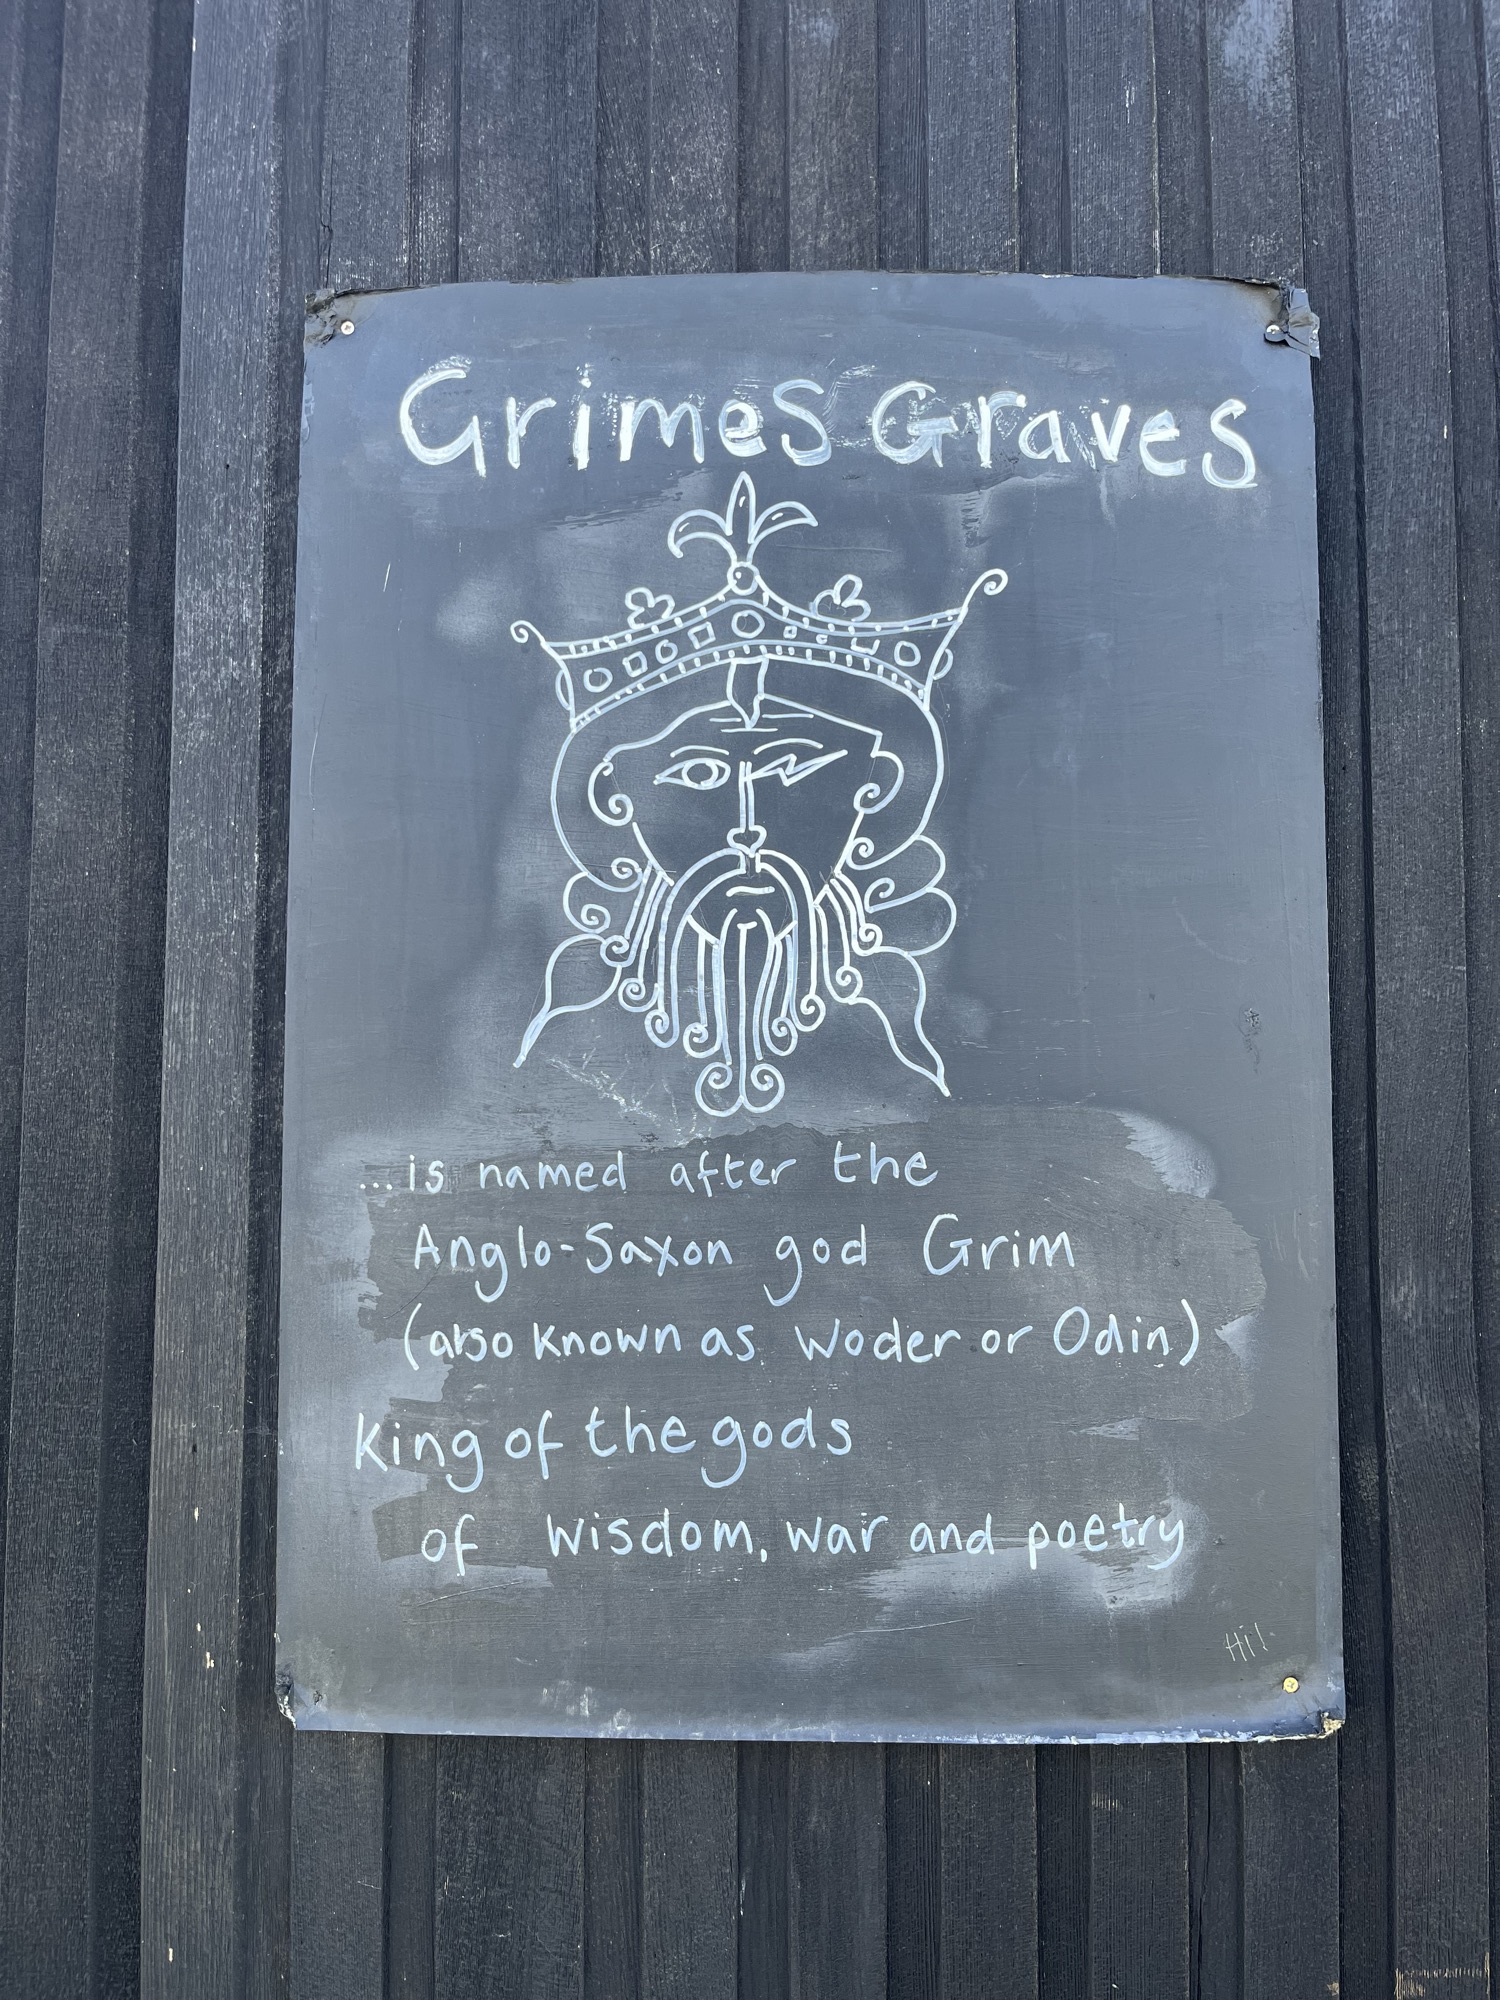 Grimes Graves
...is named after the
Anglo-Saxon god Grim
(also known as Woder or Odin)
King of the gods
of wisdom, war and poetry
Hi!